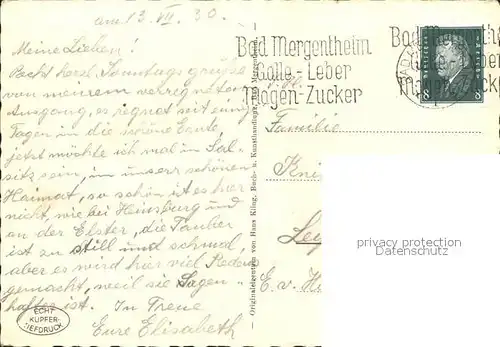 am 13. VII. 30.
Meine Lieben!
Recht herzl. Sonntagsgrüsse
von meinem verregneten
Ausgang, es regnet seit einigen
Tagen in die schöne Ernte,
jetzt möchte ich mal in Sal-
sitz sein, in unsrer schönen
Heimat, so schön ist es hier
nicht, wie bei Hainsburg und
an der Elster, die Tauber
ist zu still und schmal,
aber es wird hier viel Reden
gemacht, weil sie sagen-
haftes ist. In Treue
Eure Elisabeth
ECHT
KUPFER-
TIEFDRUCK
Originalegenten von Hans Kling, Buch- u. Kunsthandlung, Bad Mergentheim
Bad Mergentheim
Galle - Leber
Magen-Zucker
Bad Mergenthe
Leber
Magen-Zucker
DEUTSCHES REICH
8 8
Familie
Kni
E. v. H
privacy protection
Datenschutz